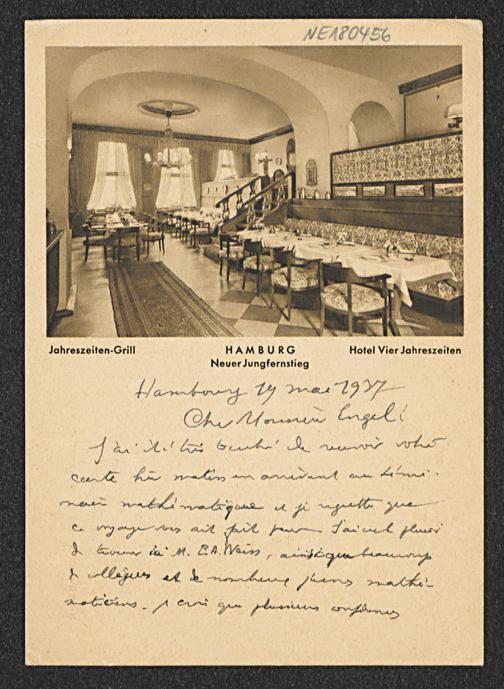 NEA80456
Jahreszeiten-Grill
HAMBURG
Neuer Jungfernstieg
Hotel Vier Jahreszeiten
Hambourg 19 mai 1937
Cher Monsieur Engel
J'ai été très touché de recevoir votre
carte hier matin en arrivant au Sémi-
naire mathématique et je regrette que
ce voyage vous ait fait peur. J'ai eu le plaisir
de trouver ici M. E.A. Weiss, ainsi que beaucoup
de collègues et de nombreux jeunes mathé-
maticiens. Je crois que plusieurs conférences